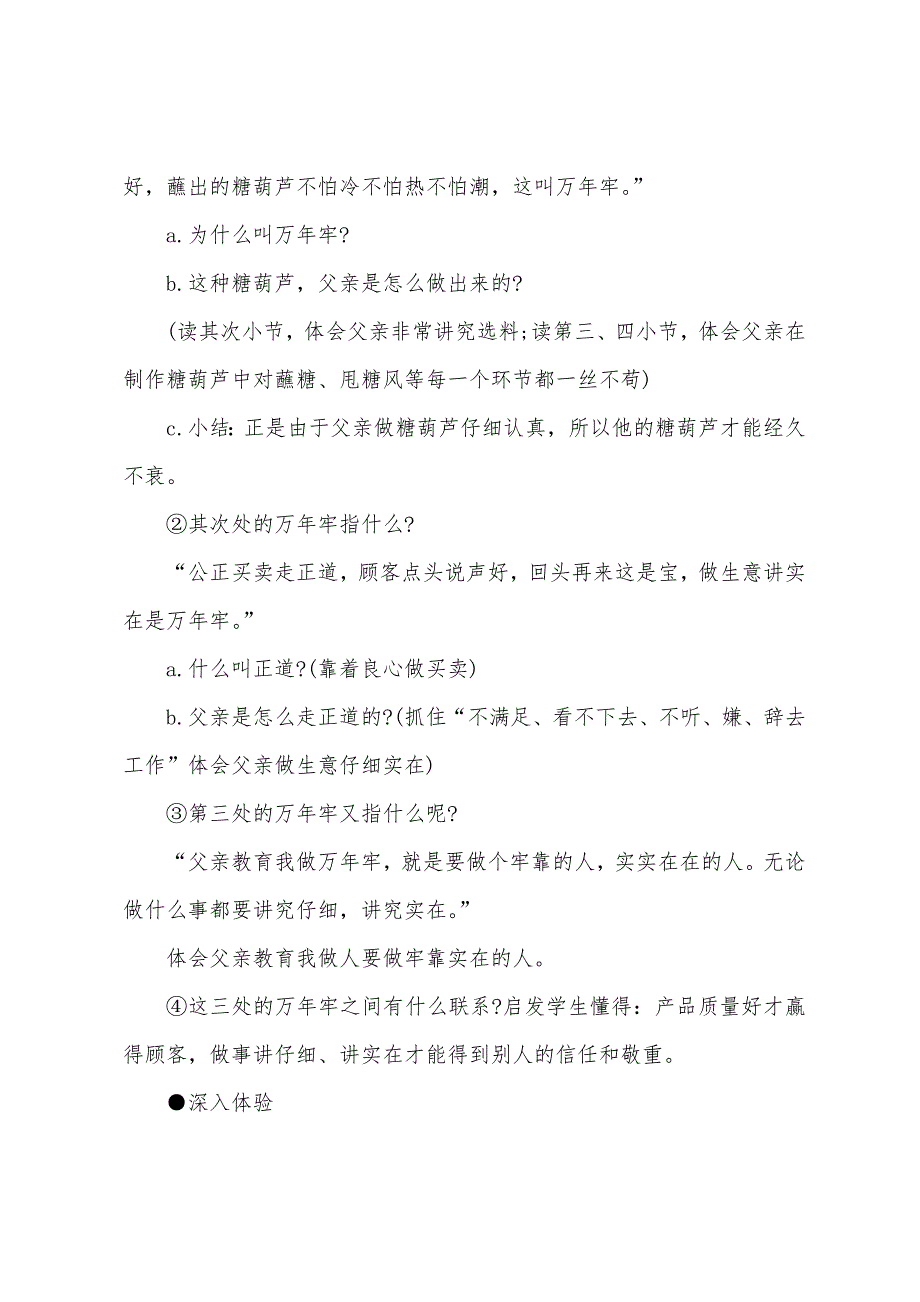 好，蘸出的糖葫芦不怕冷不怕热不怕潮，这叫万年牢。”
a.为什么叫万年牢?
b.这种糖葫芦，父亲是怎么做出来的?
(读其次小节，体会父亲非常讲究选料;读第三、四小节，体会父亲在
制作糖葫芦中对蘸糖、甩糖风等每一个环节都一丝不苟)
c.小结：正是由于父亲做糖葫芦仔细认真，所以他的糖葫芦才能经久
不衰。
②其次处的万年牢指什么?
“公正买卖走正道，顾客点头说声好，回头再来这是宝，做生意讲实
在是万年牢。”
a.什么叫正道?(靠着良心做买卖)
b.父亲是怎么走正道的?(抓住“不满足、看不下去、不听、嫌、辞去
工作”体会父亲做生意仔细实在)
③第三处的万年牢又指什么呢?
“父亲教育我做万年牢，就是要做个牢靠的人，实实在在的人。无论
做什么事都要讲究仔细，讲究实在。”
体会父亲教育我做人要做牢靠实在的人。
④这三处的万年牢之间有什么联系?启发学生懂得：产品质量好才赢
得顾客，做事讲仔细、讲实在才能得到别人的信任和敬重。
●深入体验